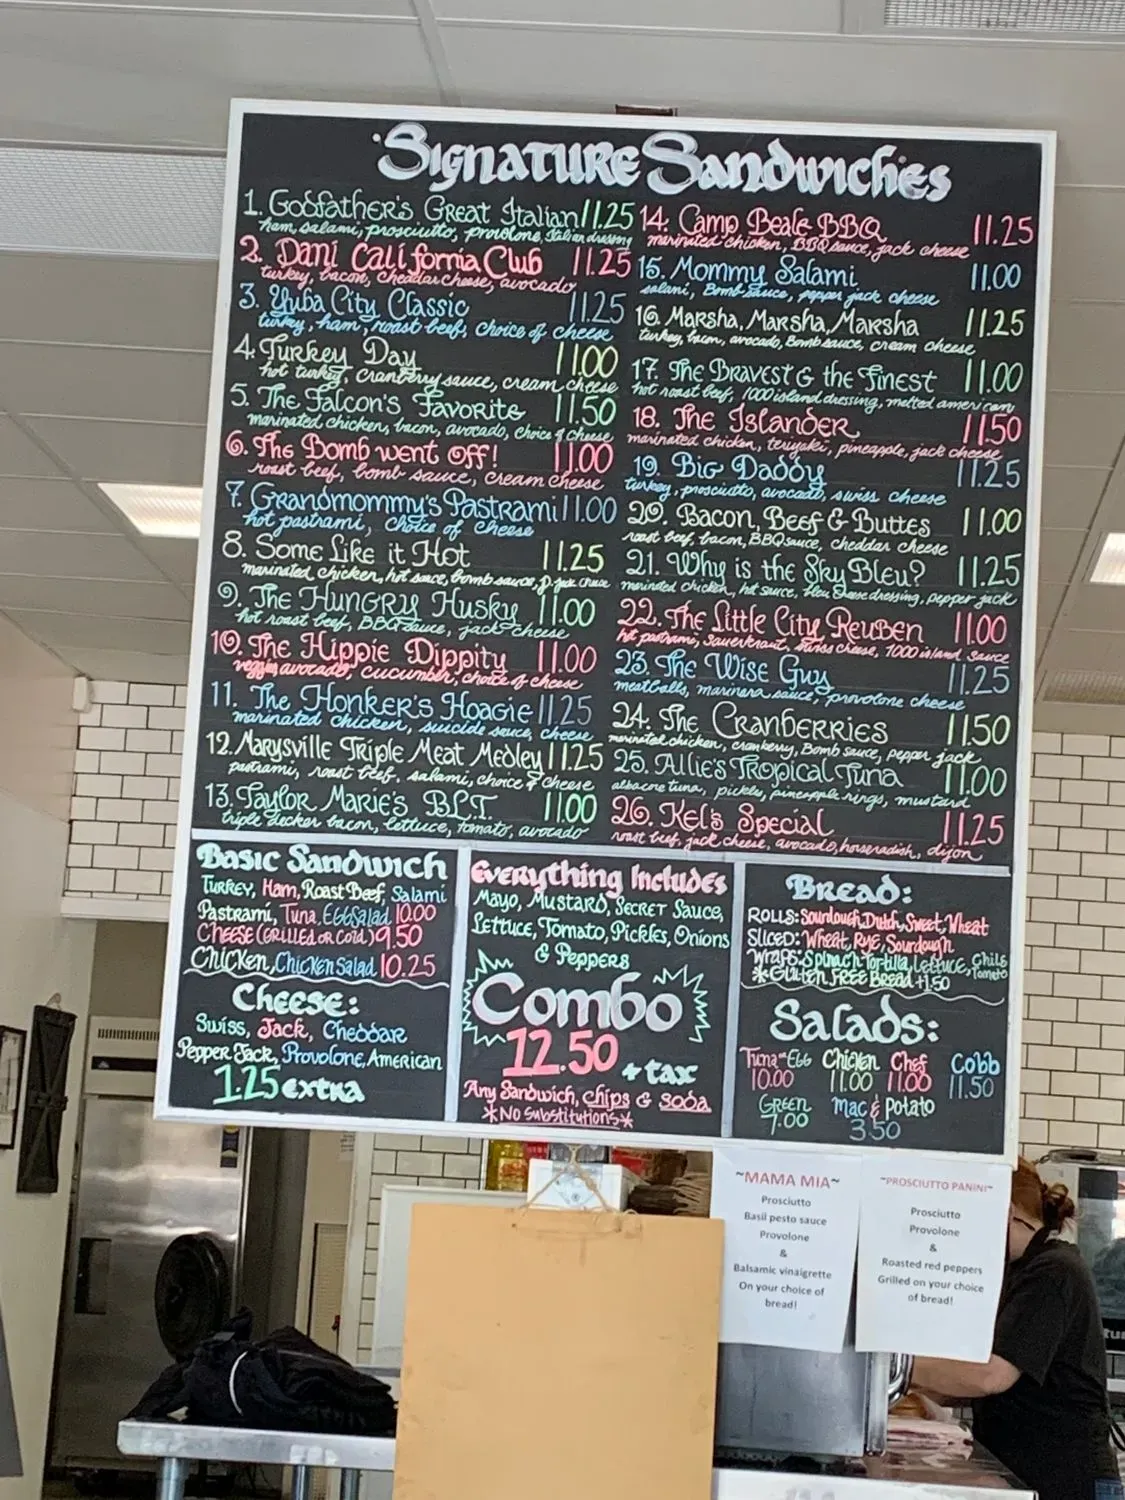 Signature Sandwiches
1. Godfather's Great Italian 11.25
ham, salami, prosciutto, provolone, Italian dressing
2. Dani California Club 11.25
turkey, bacon, cheddar cheese, avocado
3. Yuba City Classic 11.25
turkey, ham, roast beef, choice of cheese
4. Turkey Day 11.00
hot turkey, cranberry sauce, cream cheese
5. The Falcon's Favorite 11.50
marinated chicken, bacon, avocado, choice of cheese
6. The Bomb went off! 11.00
roast beef, bomb sauce, cream cheese
7. Grandmommy's Pastrami 11.00
hot pastrami, choice of cheese
8. Some Like it Hot 11.25
marinated chicken, hot sauce, bomb sauce, p. jack cheese
9. The Hungry Husky 11.00
hot roast beef, BBQ sauce, jack cheese
10. The Hippie Dippity 11.00
veggies, avocado, cucumber, choice of cheese
11. The Honker's Hoagie 11.25
marinated chicken, suicide sauce, cheese
12. Marysville Triple Meat Medley 11.25
pastrami, roast beef, salami, choice of cheese
13. Taylor Marie's B.L.T. 11.00
triple decker bacon, lettuce, tomato, avocado
14. Camp Beale BBQ 11.25
marinated chicken, BBQ sauce, jack cheese
15. Mommy Salami 11.00
salami, Bomb sauce, pepper jack cheese
16. Marsha, Marsha, Marsha 11.25
turkey, bacon, avocado, Bomb sauce, cream cheese
17. The Bravest & the Finest 11.00
hot roast beef, 1000 island dressing, melted american
18. The Islander 11.50
marinated chicken, teriyaki, pineapple, jack cheese
19. Big Daddy 11.25
turkey, prosciutto, avocado, swiss cheese
20. Bacon, Beef & Buttes 11.00
roast beef, bacon, BBQ sauce, cheddar cheese
21. Why is the Sky Bleu? 11.25
marinated chicken, hot sauce, bleu cheese dressing, pepper jack
22. The Little City Reuben 11.00
hot pastrami, sauerkraut, swiss cheese, 1000 island sauce
23. The Wise Guy 11.25
meatballs, marinara sauce, provolone cheese
24. The Cranberries 11.50
marinated chicken, cranberry, Bomb sauce, pepper jack
25. Allie's Tropical Tuna 11.00
albacore tuna, pickles, pineapple rings, mustard
26. Kel's Special 11.25
roast beef, jack cheese, avocado, horseradish, dijon
Basic Sandwich
Turkey, Ham, Roast Beef, Salami
Pastrami, Tuna, Egg Salad 10.00
Cheese (Grilled or Cold) 9.50
Chicken, Chicken Salad 10.25
Cheese:
Swiss, Jack, Cheddar
Pepper Jack, Provolone, American
1.25 extra
Everything Includes
Mayo, Mustard, Secret Sauce,
Lettuce, Tomato, Pickles, Onions
& Peppers
Combo
12.50 + tax
Any Sandwich, chips & soda
*No substitutions*
Bread:
Rolls: Sourdough, Dutch, Sweet, Wheat
Sliced: Wheat, Rye, Sourdough
Wraps: Spinach Tortilla, Lettuce, Chile Tomato
*Gluten Free Bread +1.50
Salads:
Tuna or Egg 10.00
Chicken 11.00
Chef 11.00
Cobb 11.50
Green 7.00
Mac & Potato 3.50
~MAMA MIA~
Prosciutto
Basil pesto sauce
Provolone
&
Balsamic vinaigrette
On your choice of
bread!
~PROSCIUTTO PANINI~
Prosciutto
Provolone
&
Roasted red peppers
Grilled on your choice
of bread!